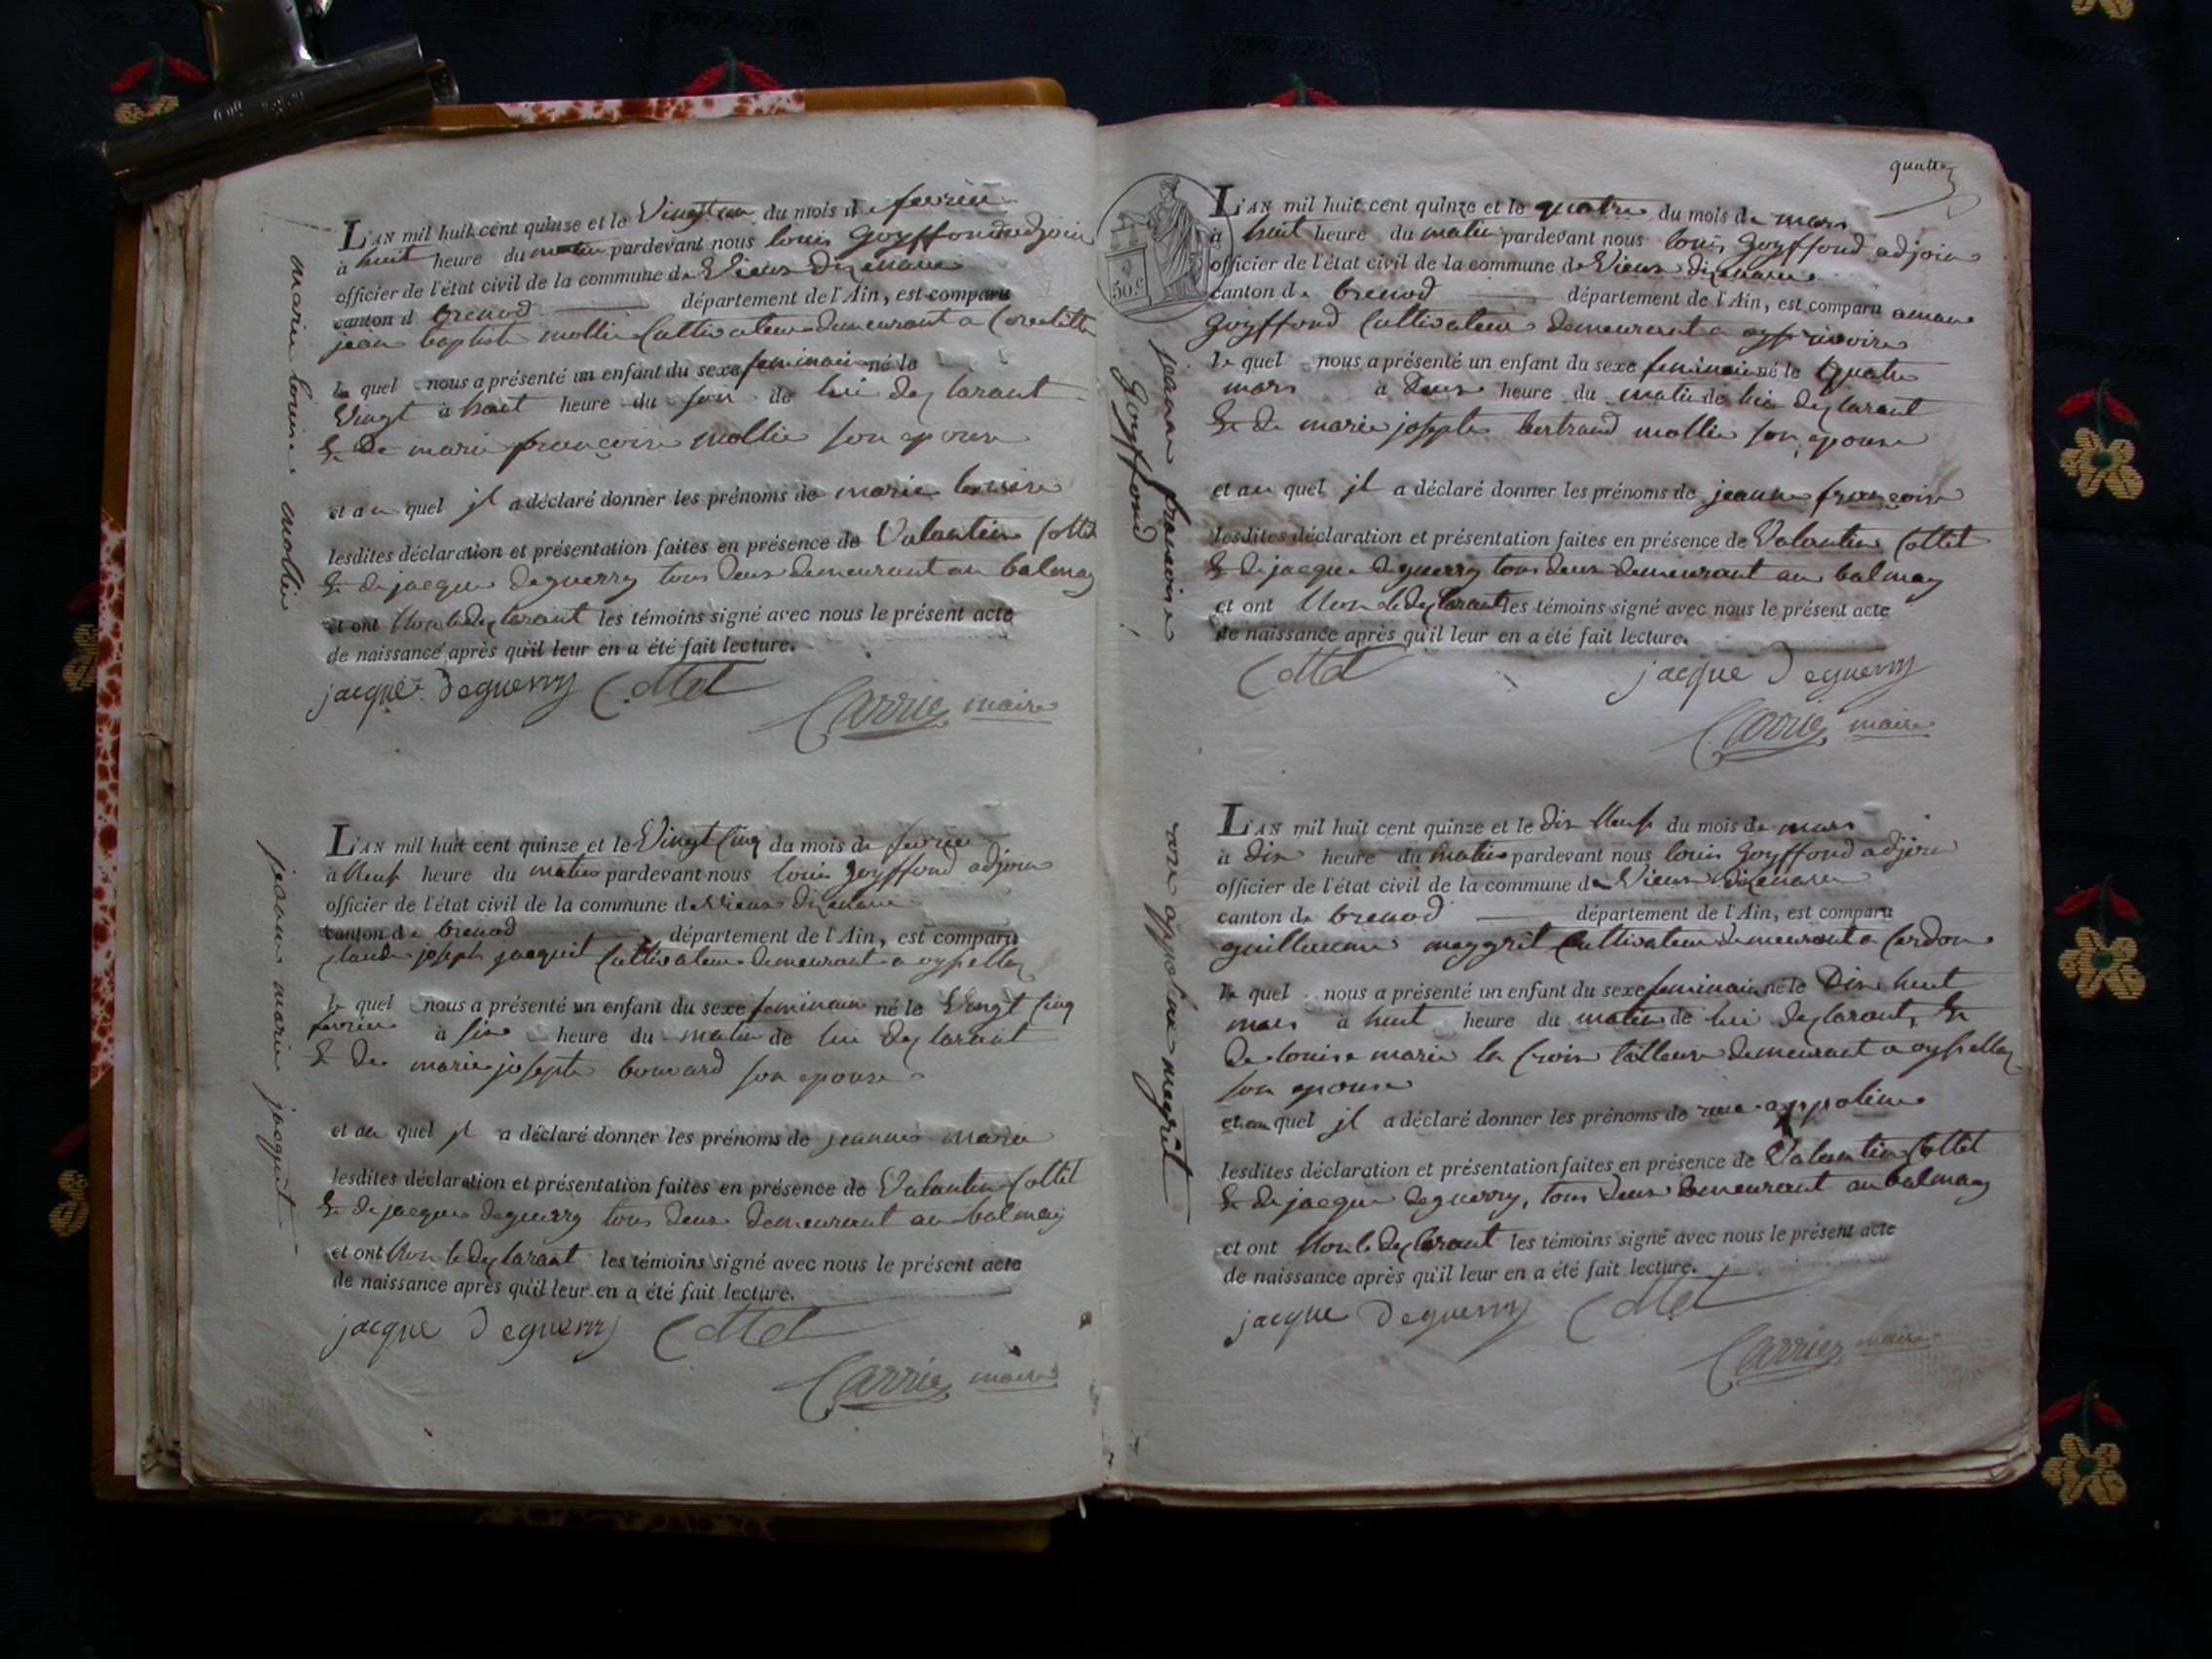 marie louise mollie
L'AN mil huit cent quinze et le Vingt un du mois de fevrier
à huit heure du matin pardevant nous louis goyffond adjoin
officier de l'état civil de la commune de Vieux dizenave
canton d brenod département de l'Ain, est comparu
jean baptiste mollie Cultivateur demeurant a
le quel nous a présenté un enfant du sexe feminain né le
Vingt à huit heure du soir de lui deylarant
& de marie françoise mollie son epouse
et au quel jl a déclaré donner les prénoms de marie louise
lesdites déclaration et présentation faites en présence de Valantin Cottet
& de jacque deguerry tous deux demeurant au balmay
et ont Non le deylarant les témoins signé avec nous le présent acte
de naissance après qu'il leur en a été fait lecture.
jacque deguerry Cottet
Carrier maire
jeanne marie jacquit
L'AN mil huit cent quinze et le Vingt Cinq du mois de fevrier
à Neuf heure du matin pardevant nous louis goyffond adjoin
officier de l'état civil de la commune de Vieux dizenave
canton de brenod département de l'Ain, est comparu
claude joseph jacquit Cultivateur demeurant a oysellaz
le quel nous a présenté un enfant du sexe feminain né le Vingt Cinq
fevrier à six heure du matin de lui deylarant
& de marie josepte bouvard son epouse
et au quel jl a déclaré donner les prénoms de jeanne marie
lesdites déclaration et présentation faites en présence de Valantin Cottet
& de jacque deguerry tous deux demeurant au balmay
et ont Non le deylarant les témoins signé avec nous le présent acte
de naissance après qu'il leur en a été fait lecture.
jacque deguerry Cottet
Carrier maire
quatre
50.c
jeanne francoise
goyffond
L'AN mil huit cent quinze et le quatre du mois de mars
à huit heure du matin pardevant nous louis goyffond adjoin
officier de l'état civil de la commune de Vieux dizenave
canton de brenod département de l'Ain, est comparu
goyffond Cultivateur demeurant a
le quel nous a présenté un enfant du sexe feminain né le quatre
mars à deux heure du matin de lui deylarant
& de marie josepte bertrand mollie son epouse
et au quel jl a déclaré donner les prénoms de jeanne françoise
lesdites déclaration et présentation faites en présence de Valantin Cottet
& de jacque deguerry tous deux demeurant au balmay
et ont Non le deylarant les témoins signé avec nous le présent acte
de naissance après qu'il leur en a été fait lecture.
Cottet jacque deguerry
Carrier maire
appoline megrit
L'AN mil huit cent quinze et le dix Neuf du mois de mars
à dix heure du matin pardevant nous louis goyffond adjoin
officier de l'état civil de la commune de Vieux dizenave
canton de brenod département de l'Ain, est comparu
guillaume meggrit Cultivateur demeurant a Cerdon
le quel nous a présenté un enfant du sexe feminain né le Dix huit
mars à huit heure du matin de lui deylarant, &
de louise marie la Croix tailleuse demeurant a oysellaz
son epouse
et au quel jl a déclaré donner les prénoms de appoline
lesdites déclaration et présentation faites en présence de Valantin Cottet
& de jacque deguerry, tous deux demeurant au balmay
et ont Non le deylarant les témoins signé avec nous le présent acte
de naissance après qu'il leur en a été fait lecture.
jacque deguerry Cottet
Carrier maire